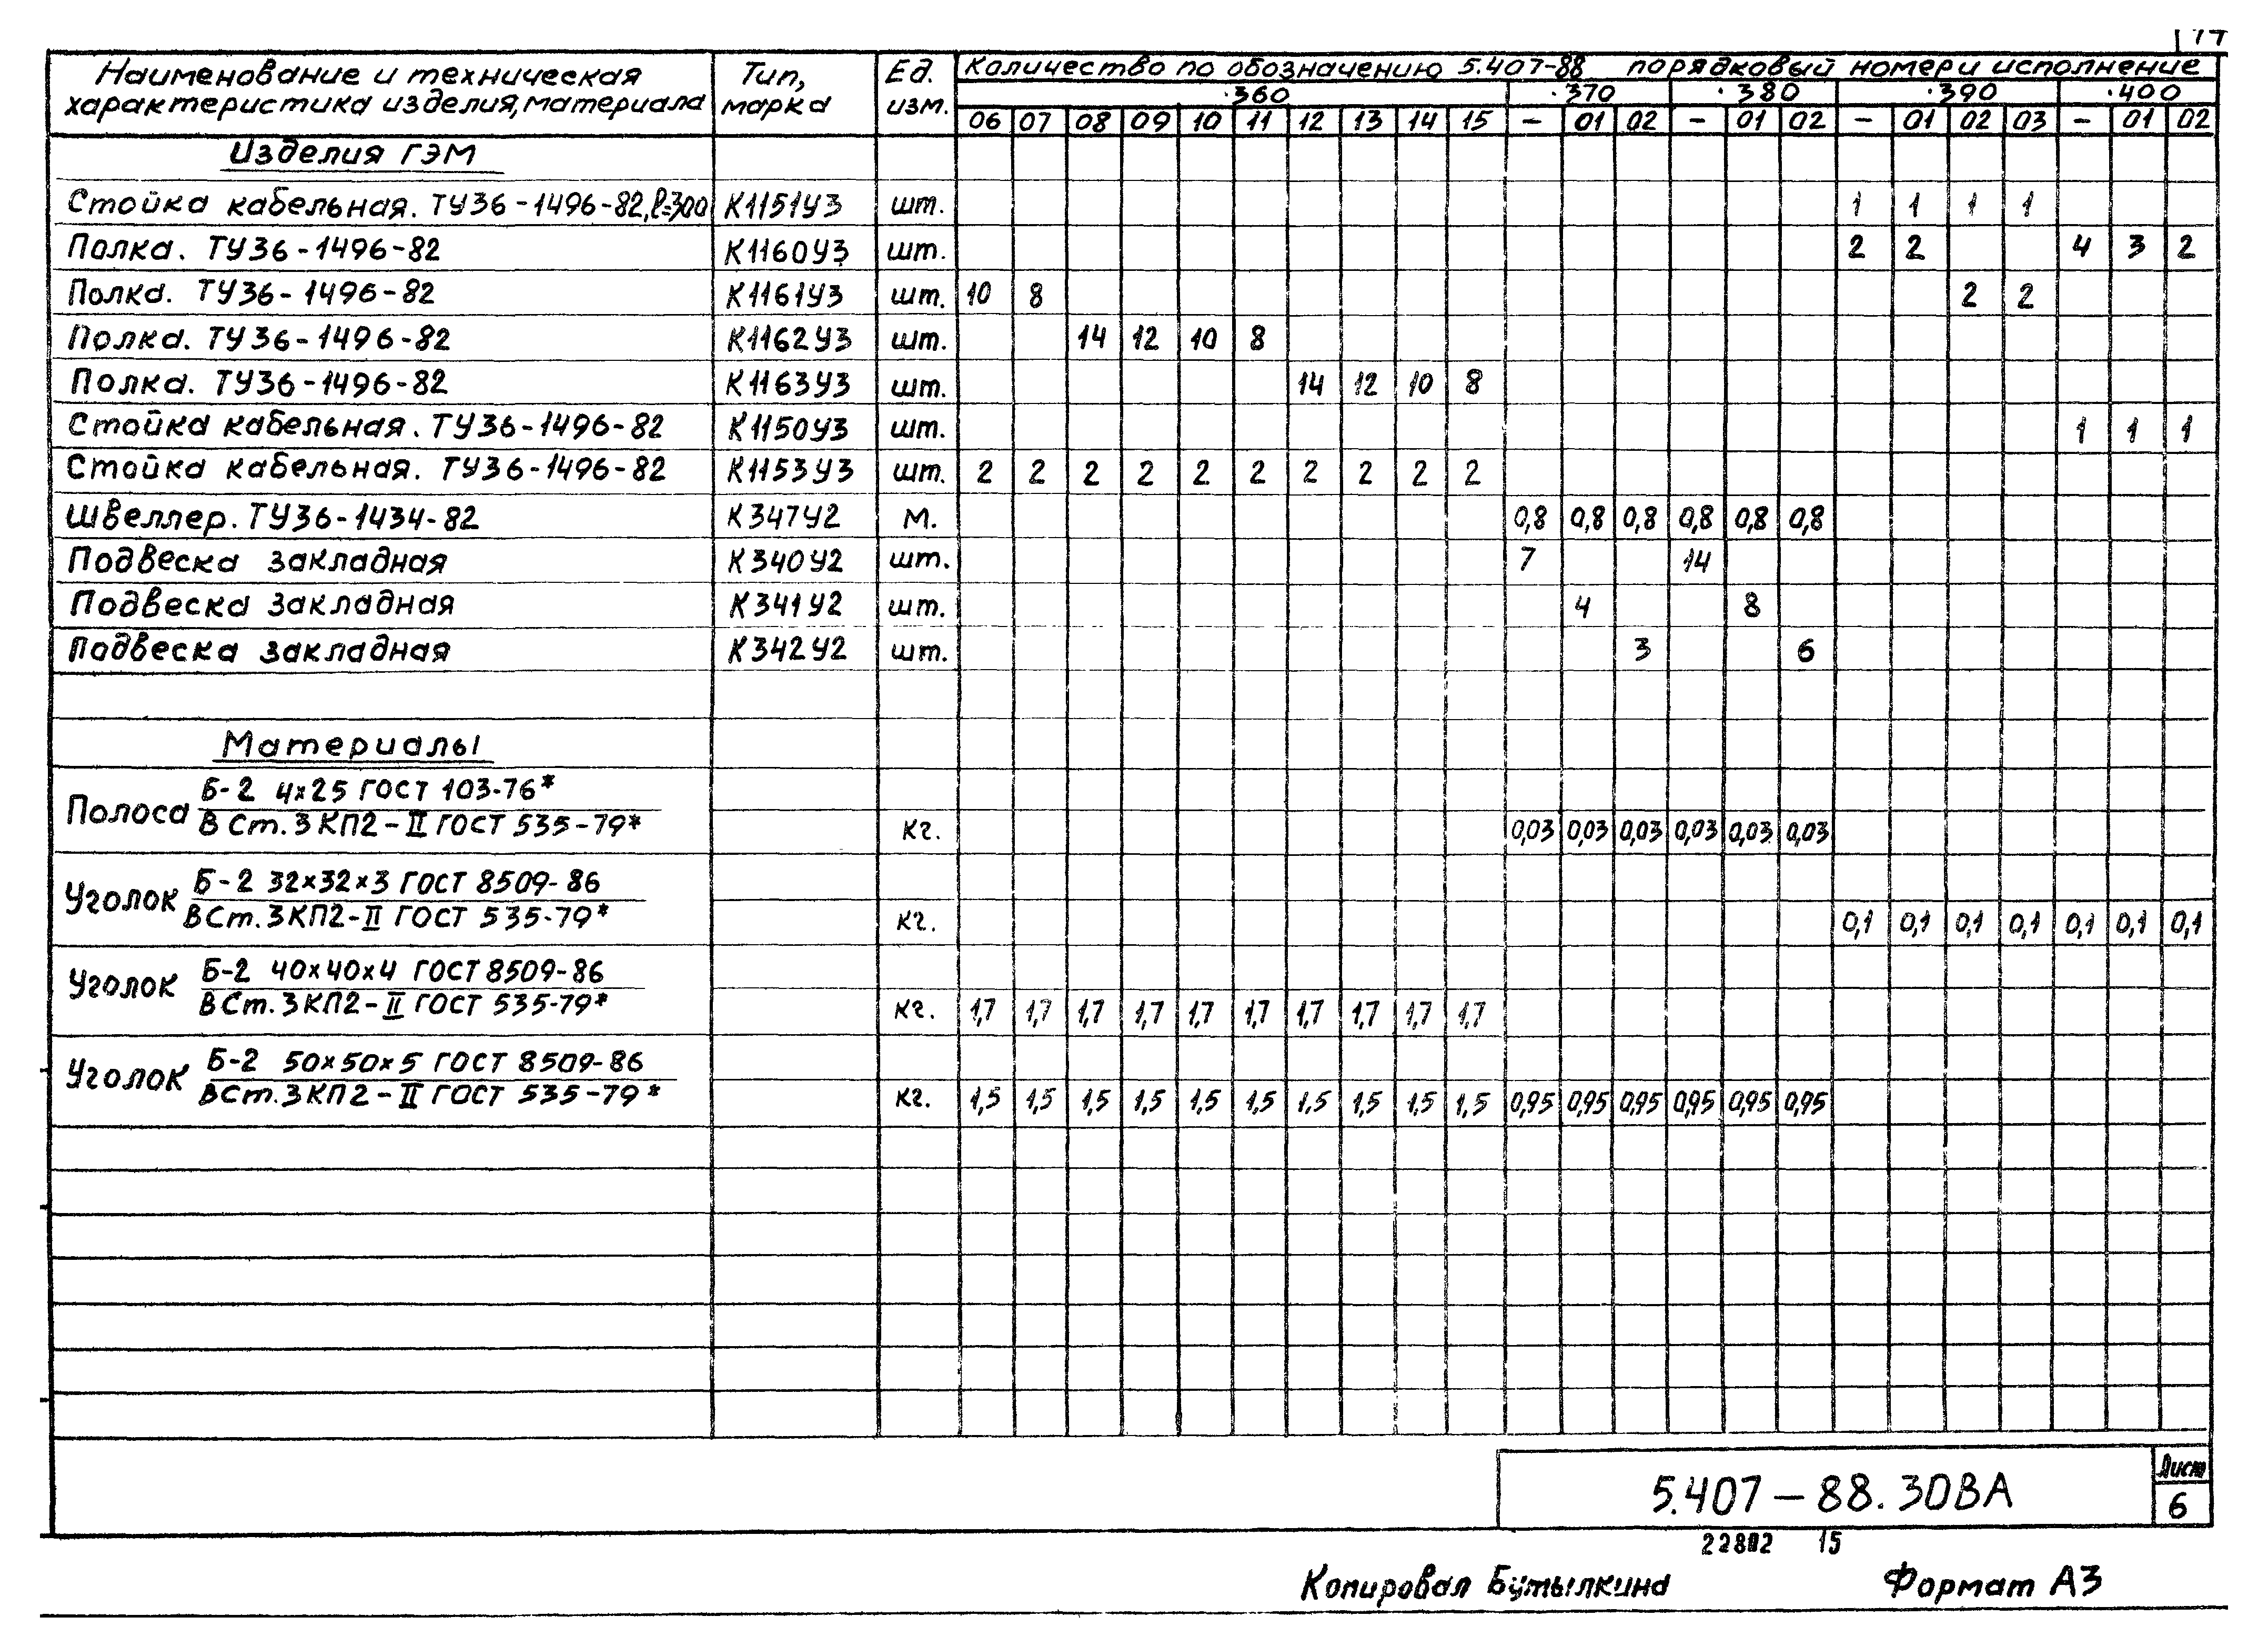 14
Наименование и техническая характеристика изделия, материала Тип, марка Ед. изм. Количество по обозначению 5.407-88 порядковый номер и исполнение
.360 .370 .380 .390 .400
06 07 08 09 10 11 12 13 14 15 – 01 02 – 01 02 – 01 02 03 – 01 02
Изделия ГЭМ
Стойка кабельная. ТУ36-1496-82, l=300 К1151У3 шт. 1 1 1 1
Полка. ТУ36-1496-82 К1160У3 шт. 2 2 4 3 2
Полка. ТУ36-1496-82 К1161У3 шт. 10 8 2 2
Полка. ТУ36-1496-82 К1162У3 шт. 14 12 10 8
Полка. ТУ36-1496-82 К1163У3 шт. 14 12 10 8
Стойка кабельная. ТУ36-1496-82 К1150У3 шт. 1 1 1
Стойка кабельная. ТУ36-1496-82 К1153У3 шт. 2 2 2 2 2 2 2 2 2 2
Швеллер. ТУ36-1434-82 К347У2 М. 0,8 0,8 0,8 0,8 0,8 0,8
Подвеска закладная К340У2 шт. 7 14
Подвеска закладная К341У2 шт. 4 8
Подвеска закладная К342У2 шт. 3 6
Материалы
Полоса Б-2 4х25 ГОСТ 103-76*
В Ст.3 КП2-II ГОСТ 535-79* кг. 0,03 0,03 0,03 0,03 0,03 0,03
Уголок Б-2 32х32х3 ГОСТ 8509-86
В Ст.3 КП2-II ГОСТ 535-79* кг. 0,1 0,1 0,1 0,1 0,1 0,1 0,1
Уголок Б-2 40х40х4 ГОСТ 8509-86
В Ст.3 КП2-II ГОСТ 535-79* кг. 1,7 1,7 1,7 1,7 1,7 1,7 1,7 1,7 1,7 1,7
Уголок Б-2 50х50х5 ГОСТ 8509-86
В Ст.3 КП2-II ГОСТ 535-79* кг. 1,5 1,5 1,5 1,5 1,5 1,5 1,5 1,5 1,5 1,5 0,95 0,95 0,95 0,95 0,95 0,95
5.407-88.30ВА
Лист
6
22802 15
Копировал Бутылкина Формат А3